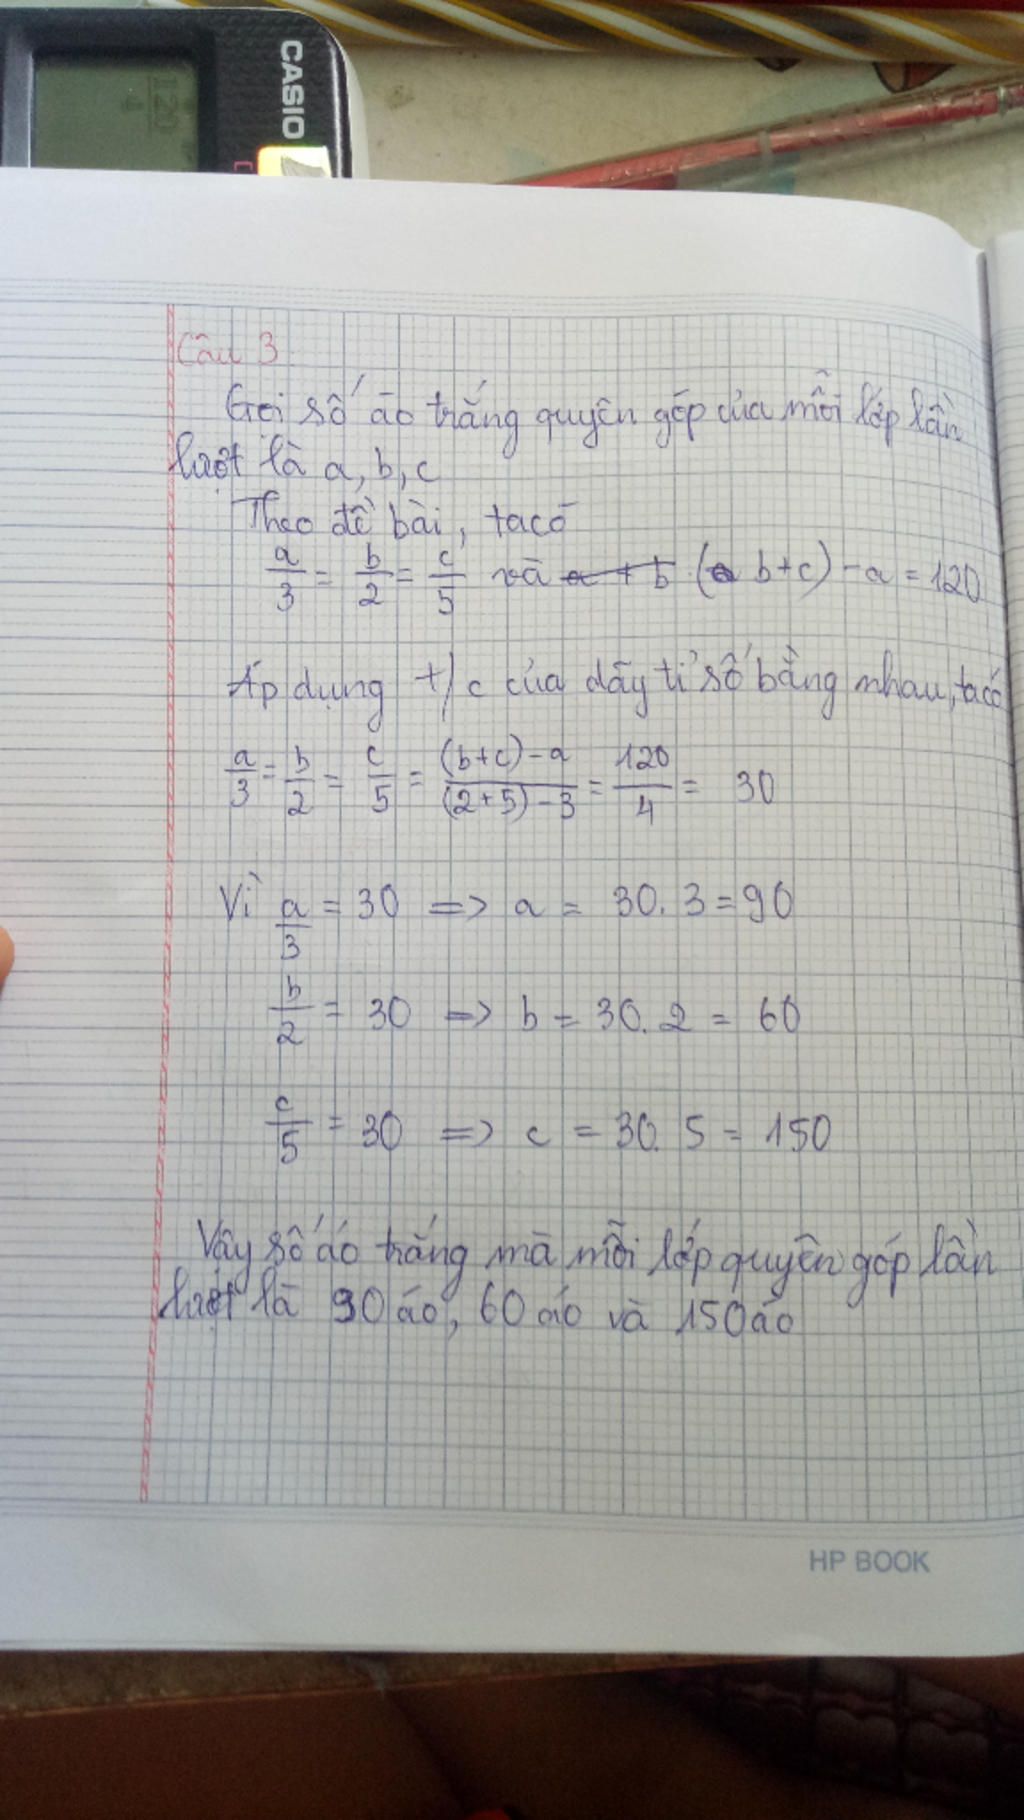 CASIO
120/4
Câu 3
Gọi số áo trắng quyên góp của mỗi lớp lần
lượt là a, b, c
Theo đề bài, ta có
a/3 = b/2 = c/5 và a + b (a b+c) - a = 120
Áp dụng t/c của dãy tỉ số bằng nhau, ta có
a/3 = b/2 = c/5 = (b+c)-a/(2+5)-3 = 120/4 = 30
Vì a/3 = 30 => a = 30. 3 = 90
b/2 = 30 => b = 30. 2 = 60
c/5 = 30 => c = 30. 5 = 150
Vậy số áo trắng mà mỗi lớp quyên góp lần
lượt là 90 áo, 60 áo và 150 áo
HP BOOK